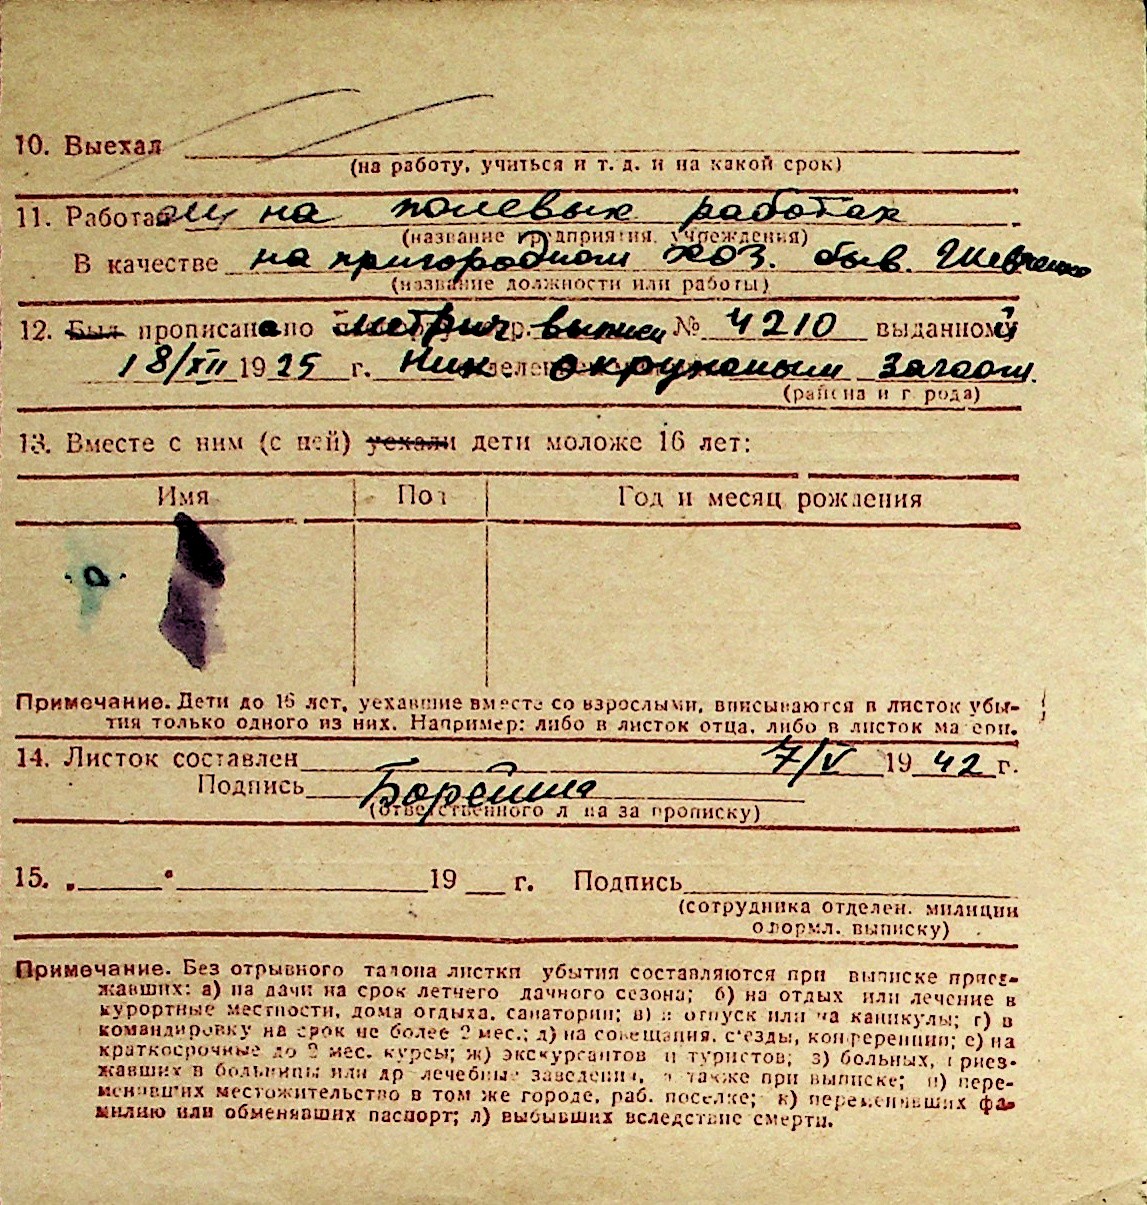 10. Выехал
(на работу, учиться и т. д. и на какой срок)
11. Работа на полевых работах
(название предприятия, учреждения)
В качестве на пригородном хоз. быв. Шевченко
(название должности или работы)
12. Был прописана по метрич. выписи № 4210 выданной
18/XII 1925 г. Ник. окружным Загсом.
(района и города)
13. Вместе с ним (с ней) уехали дети моложе 16 лет:
Имя Пол Год и месяц рождения
Примечание. Дети до 16 лет, уехавшие вместе со взрослыми, вписываются в листок убы-
тия только одного из них. Например: либо в листок отца, либо в листок матери.
14. Листок составлен 7/V 1942 г.
Подпись
(ответственного лица за прописку)
15. „ “ 19 г. Подпись
(сотрудника отделен. милиции
оформл. выписку)
Примечание. Без отрывного талона листки убытия составляются при выписке приез-
жавших: а) на дачи на срок летнего дачного сезона; б) на отдых или лечение в
курортные местности, дома отдыха, санатории; в) в отпуск или на каникулы; г) в
командировку на срок не более 2 мес.; д) на совещания, съезды, конференции; е) на
краткосрочные до 2 мес. курсы; ж) экскурсантов и туристов; з) больных, приез-
жавших в больницы или др лечебные заведения, а также при выписке; и) пере-
менивших местожительство в том же городе, раб. поселке; к) переменивших фа-
милию или обменявших паспорт; л) выбывших вследствие смерти.